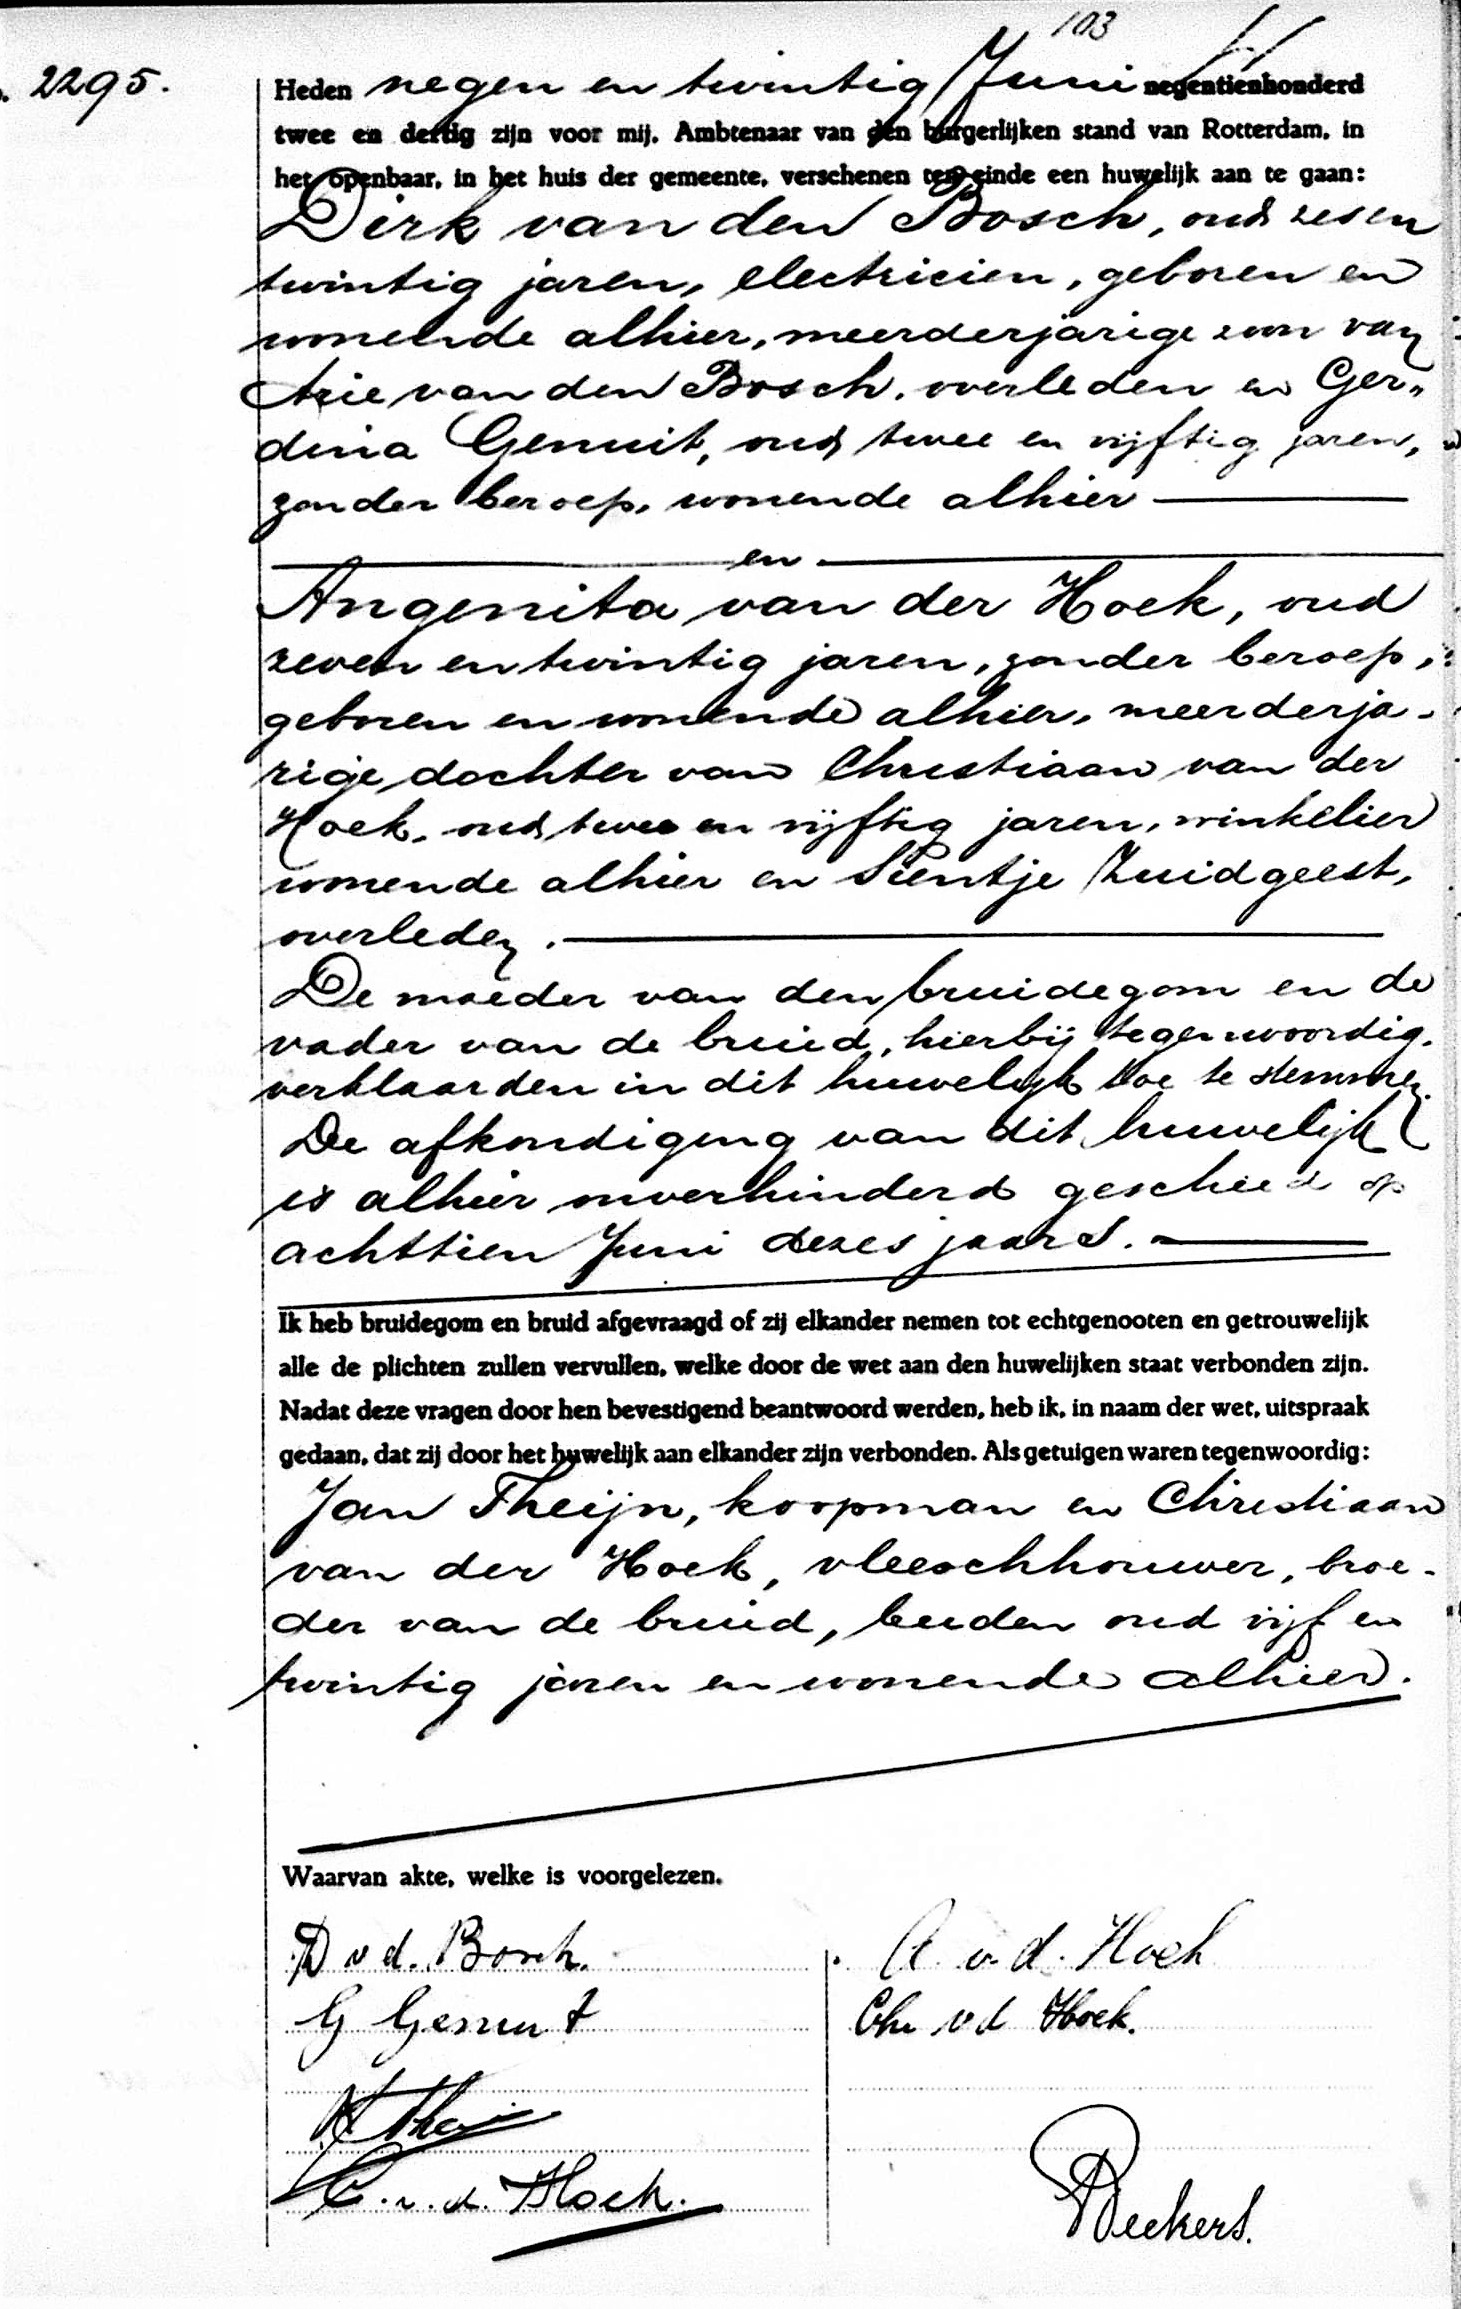 103
2295.
Heden negen en twintig Juni negentienhonderd
twee en dertig zijn voor mij, Ambtenaar van den burgerlijken stand van Rotterdam, in
het openbaar, in het huis der gemeente, verschenen ten einde een huwelijk aan te gaan:
Dirk van den Bosch, oud zes en
twintig jaren, electricien, geboren en
wonende alhier, meerderjarige zoon van
Arie van den Bosch, overleden en Ger„
dina Genuit, oud twee en vijftig jaren,
zonder beroep, wonende alhier
en
Angenita van der Hoek, oud
zeven en twintig jaren, zonder beroep,
geboren en wonende alhier, meerderja-
rige dochter van Christiaan van der
Hoek, oud twee en vijftig jaren, winkelier
wonende alhier en Sientje Zuidgeest,
overleden.
De moeder van den bruidegom en de
vader van de bruid, hierbij tegenwoordig,
verklaarden in dit huwelijk toe te stemmen.
De afkondiging van dit huwelijk
is alhier onverhinderd geschied op
achttien Juni dezes jaars.
Ik heb bruidegom en bruid afgevraagd of zij elkander nemen tot echtgenooten en getrouwelijk
alle de plichten zullen vervullen, welke door de wet aan den huwelijken staat verbonden zijn.
Nadat deze vragen door hen bevestigend beantwoord werden, heb ik, in naam der wet, uitspraak
gedaan, dat zij door het huwelijk aan elkander zijn verbonden. Als getuigen waren tegenwoordig:
Jan Theijn, koopman en Christiaan
van der Hoek, vleeschhouwer, broe-
der van de bruid, beiden oud vijf en
twintig jaren en wonende alhier.
Waarvan akte, welke is voorgelezen.
D v d. Bosch. A v. d. Hoek
G Genuit Chr v d Hoek.
C. v. d. Hoek.